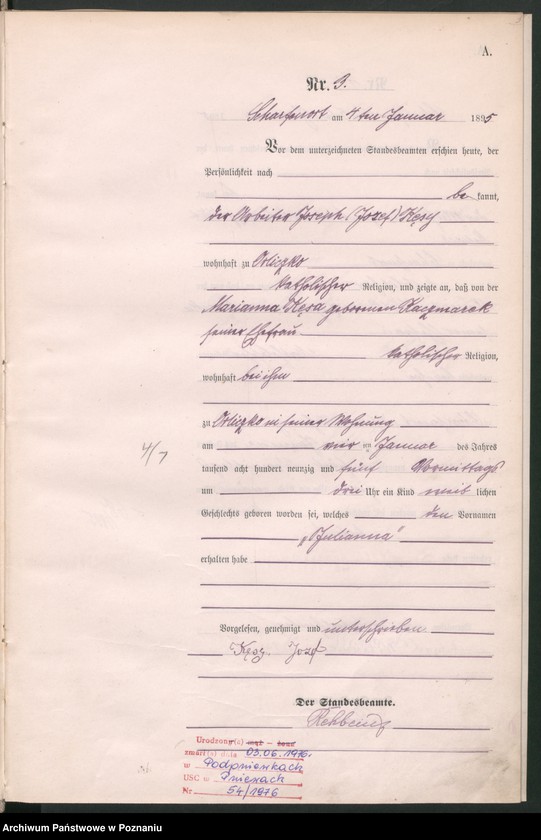 A.
Nr. 3.
Scharfenort am 4ten Januar 1895
Vor dem unterzeichneten Standesbeamten erschien heute, der
Persönlichkeit nach
bekannt,
der Arbeiter Joseph (Jozef) Kęsy
wohnhaft zu Orliczko
katholischer Religion, und zeigte an, daß von der
Marianna Kęsa geborenen Kaczmarek
seiner Ehefrau
katholischer Religion,
wohnhaft bei ihm
zu Orliczko in seiner Wohnung
am vier ten Januar des Jahres
tausend acht hundert neunzig und fünf Vormittags
um drei Uhr ein Kind weiblichen
Geschlechts geboren worden sei, welches den Vornamen
„Julianna"
erhalten habe
4/1
Vorgelesen, genehmigt und unterschrieben
Kęsy Jozef
Der Standesbeamte.
Urodzony(a)
zmarł(a) dnia 03.06.1976r.
w Podpniewkach
USC w Pniewach
Nr 54/1976
Archiwum Państwowe w Poznaniu